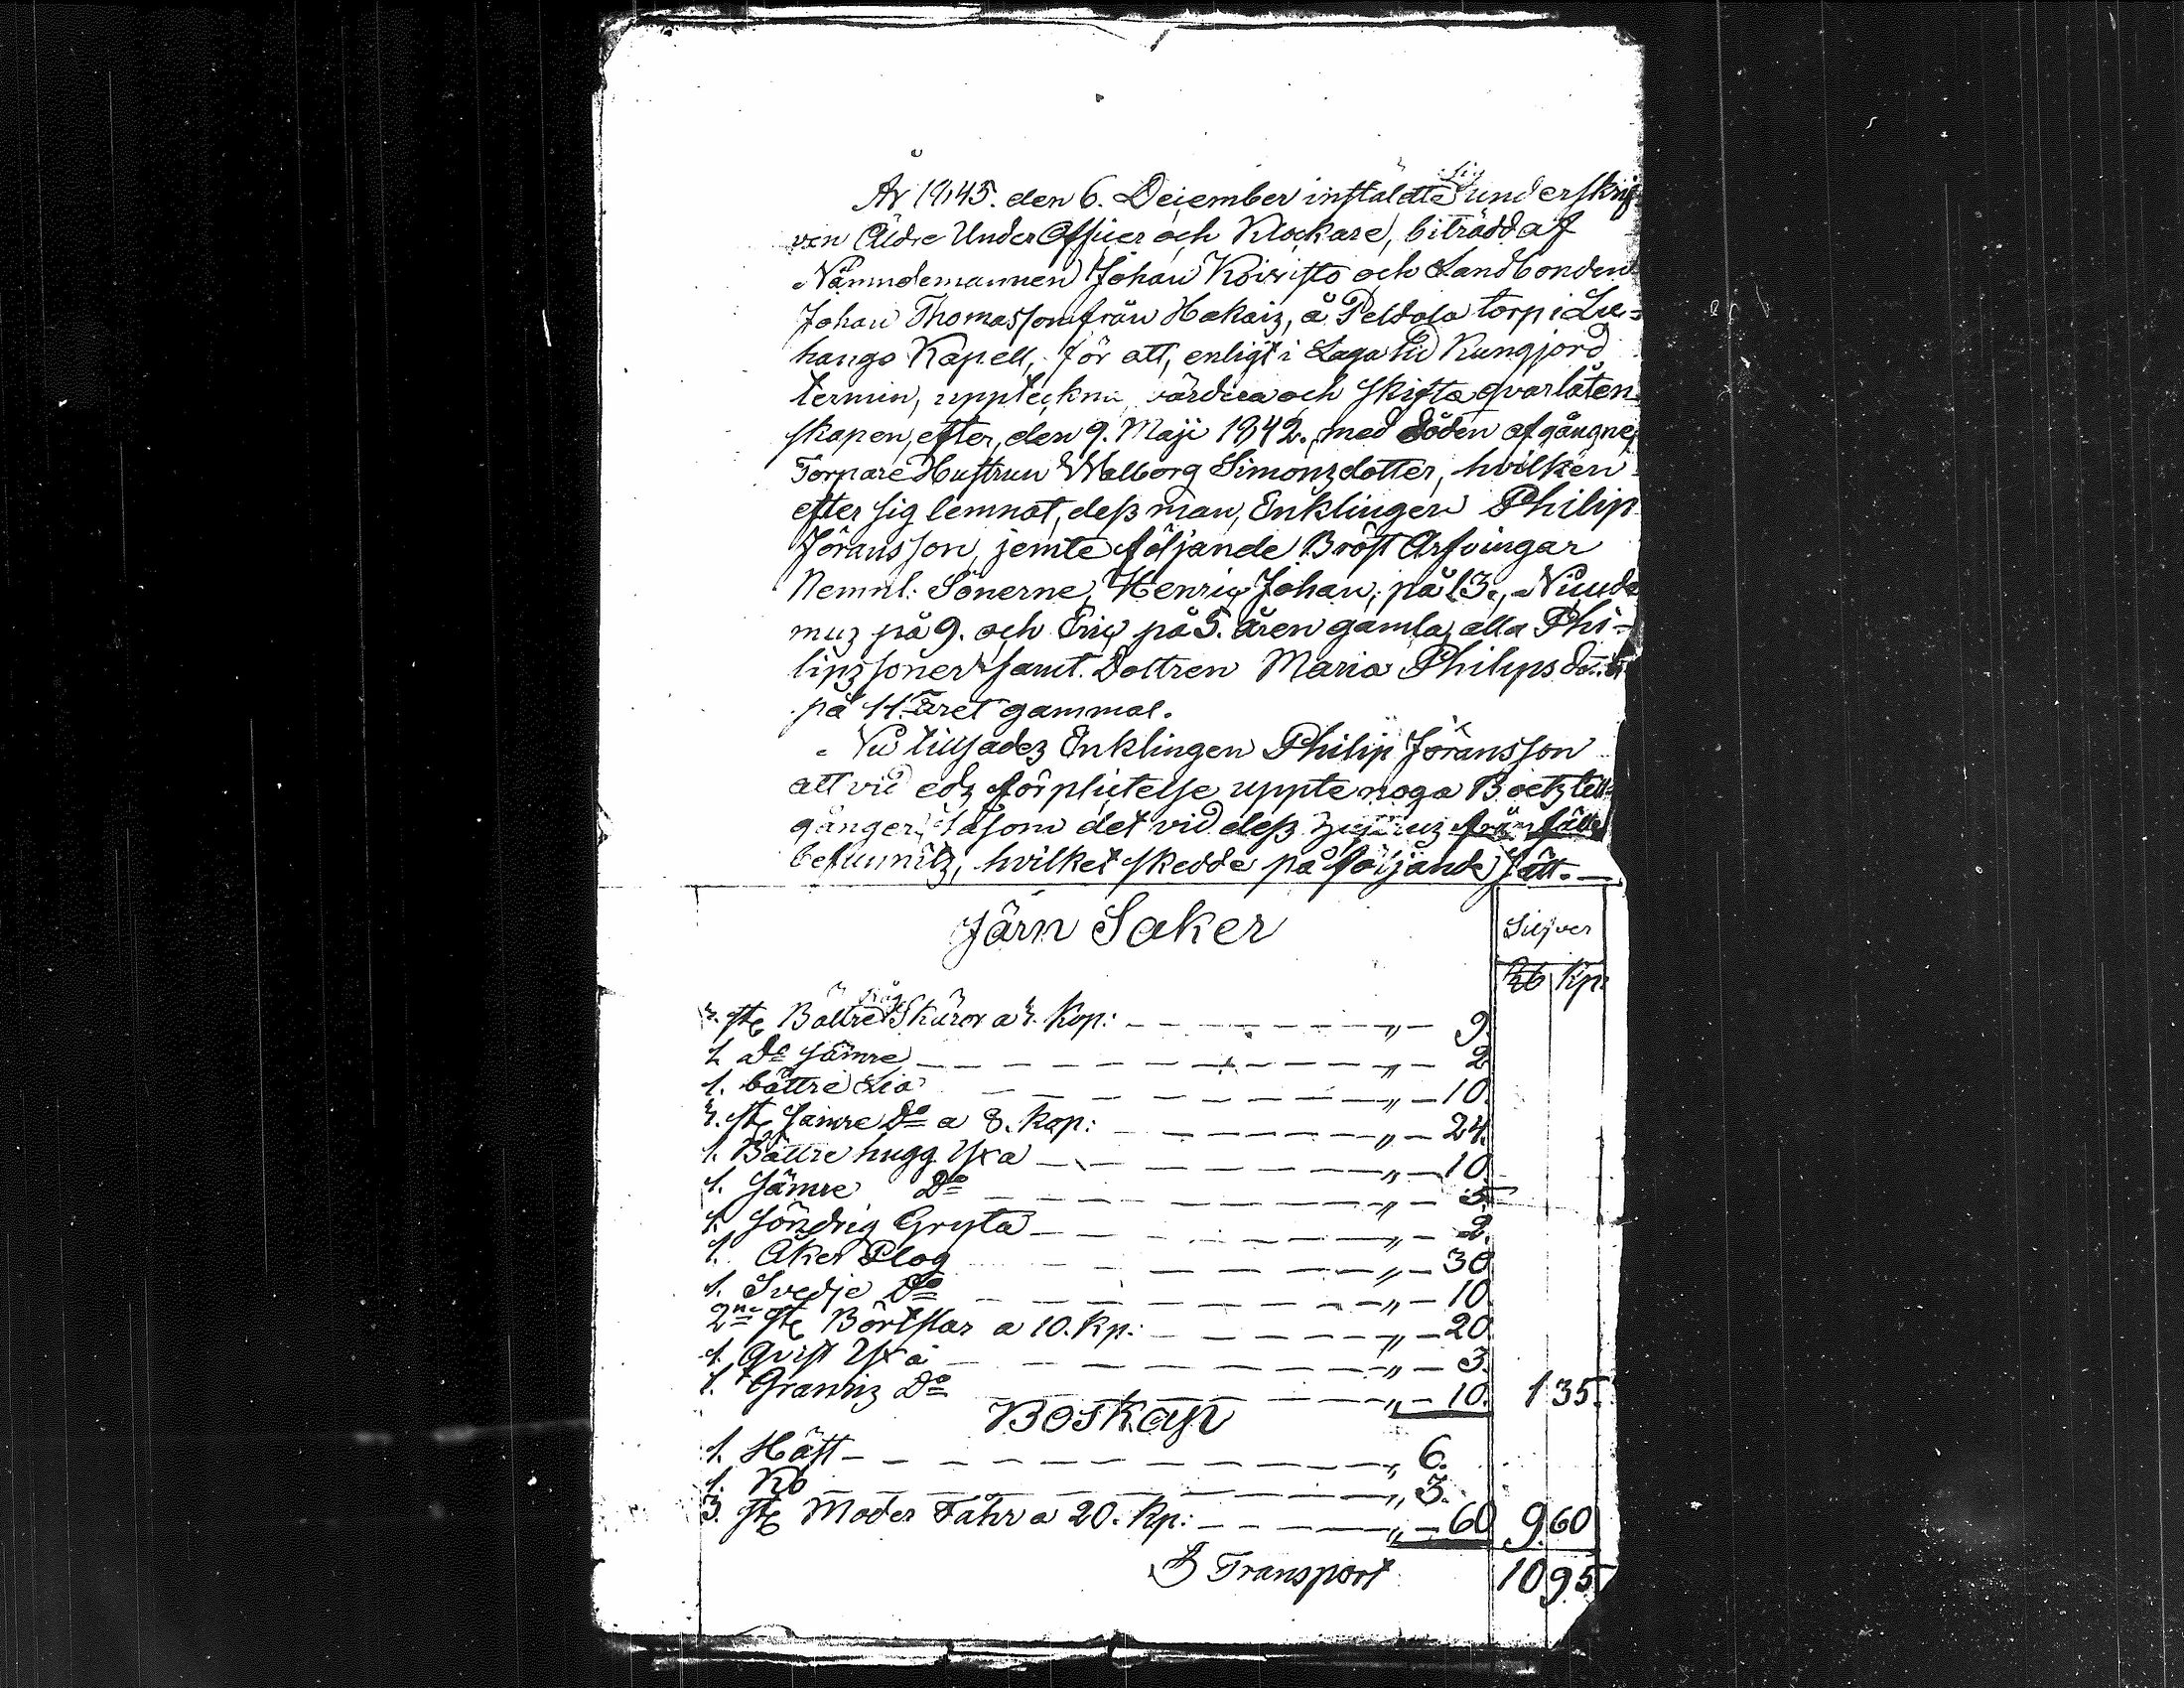 År 1845. den 6. December inställdte sig underskrif-
ven Äldre UnderOfficer och Klockare, biträdd af
Nämndemannen Johan Koivisto och Landbonden
Johan Thomasson från Hakais, å Peldola torp i Lu-
hango Kapell, för att, enligt i Laga tid kungjord
termin, uppteckna värdera och skifta qvarlåten-
skapen, efter, den 9. Maji 1842. med döden afgångne,
Torpare Hustrun Walborg Simonsdotter, hvilken
efter sig lemnat, dess man, Enklingen Philip
Jöransson, jemte följande Bröst Arfvingar
Nemnl: Sönerne, Henric Johan, på 13., Nicode
mus på 9. och Eric på 5. åren gamla, alla Phi-
lipssöner samt Dottren Maria Philips dotter
på 11. året gammal.
Nu tillsades Enklingen Philip Jöransson
att vid eds förplictelse uppte noga Boets till-
gånger, såsom det vid dess hustrus frånfälle
befunnits, hvilket skedde på följande sätt. —
Järn Saker
Silfver
Rb Kp:
3. st: Bättre Skäror a 3. Kop: „ 9.
1 Do sämre „ 2
1. bättre Lia „ 10.
3. st: sämre Do a 8. Kop: „ 24.
1. Bättre hugg Yxa „ 10.
1. sämre Do „ 5.
1. söndrig Gryta „ 2.
1. Åker Plog „ 30
1. Svedje Do „ 10.
2ne st: a 10. Kp: „ 20.
1. Qvist Yxa „ 3.
1. Do „ 10. 1 35.
Boskap
1. Häst „ 6.
1. Ko „ 3.
3. st: Moder Fåhr a 20. Kp: „ 60 9. 60
Transport 10 95